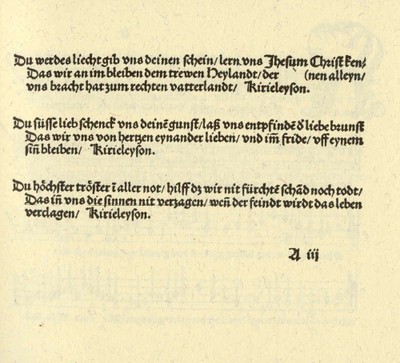 Du werdes liecht gib vns deinen schein/ lern vns Jhesum Christ ken/
Das wir an im bleiben dem trewen Heylandt/ der (nen alleyn/
vns bracht hat zum rechten vatterlandt/ Kirieleyson.
Du süsse lieb schenck vns deinē gunst/ laß vns entpfindē d̄ liebe brunst
Das wir vns von hertzen eynander lieben/ vnd im̄ fride/ vff eynem
sin̄ bleiben/ Kirieleyson.
Du höchster tröster ī aller not/ hilff dz wir nit fürchtē schād noch todt/
Das in̄ vns die sinnen nit verzagen/ wen̄ der feindt wirdt das leben
verclagen/ Kirieleyson.
A iij